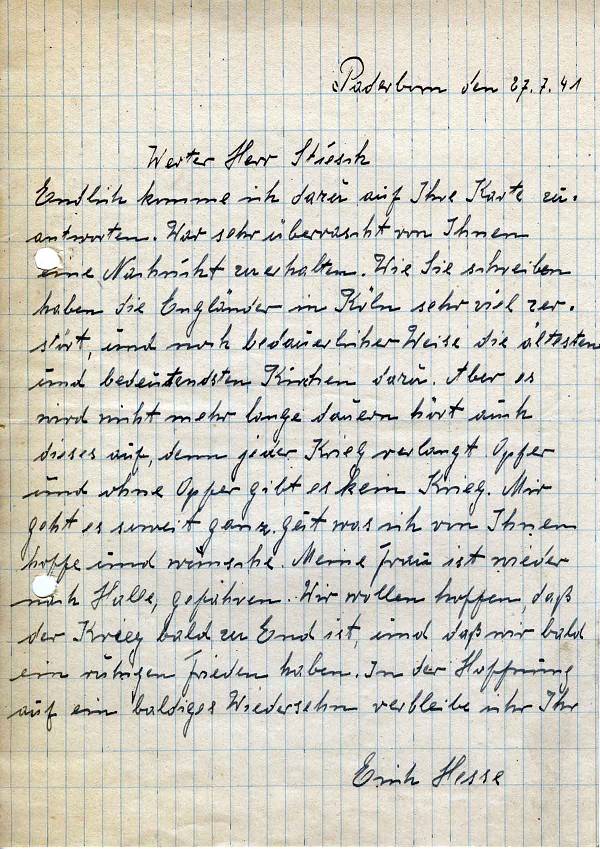 Paderborn den 27.7.41
Werter Herr Stüsch
Endlich komme ich dazu auf Ihre Karte zu-
antworten. War sehr überrascht von Ihnen
eine Nachricht zu erhalten. Wie Sie schreiben
haben die Engländer in Köln sehr viel zer-
stört, und noch bedauerlicher Weise die ältesten
und bedeutendsten Kirchen dazu. Aber es
wird nicht mehr lange dauern hört auch
dieses auf, denn jeder Krieg verlangt Opfer
und ohne Opfer gibt es kein Krieg. Mir
geht es soweit ganz gut was ich von Ihnen
hoffe und wünsche. Meine Frau ist wieder
nach Halle, gefahren. Wir wollen hoffen, daß
der Krieg bald zu End ist, und daß wir bald
ein ruhigen Frieden haben. In der Hoffnung
auf ein baldiges Wiedersehn verbleibe ihr Ihr
Erich Hesse